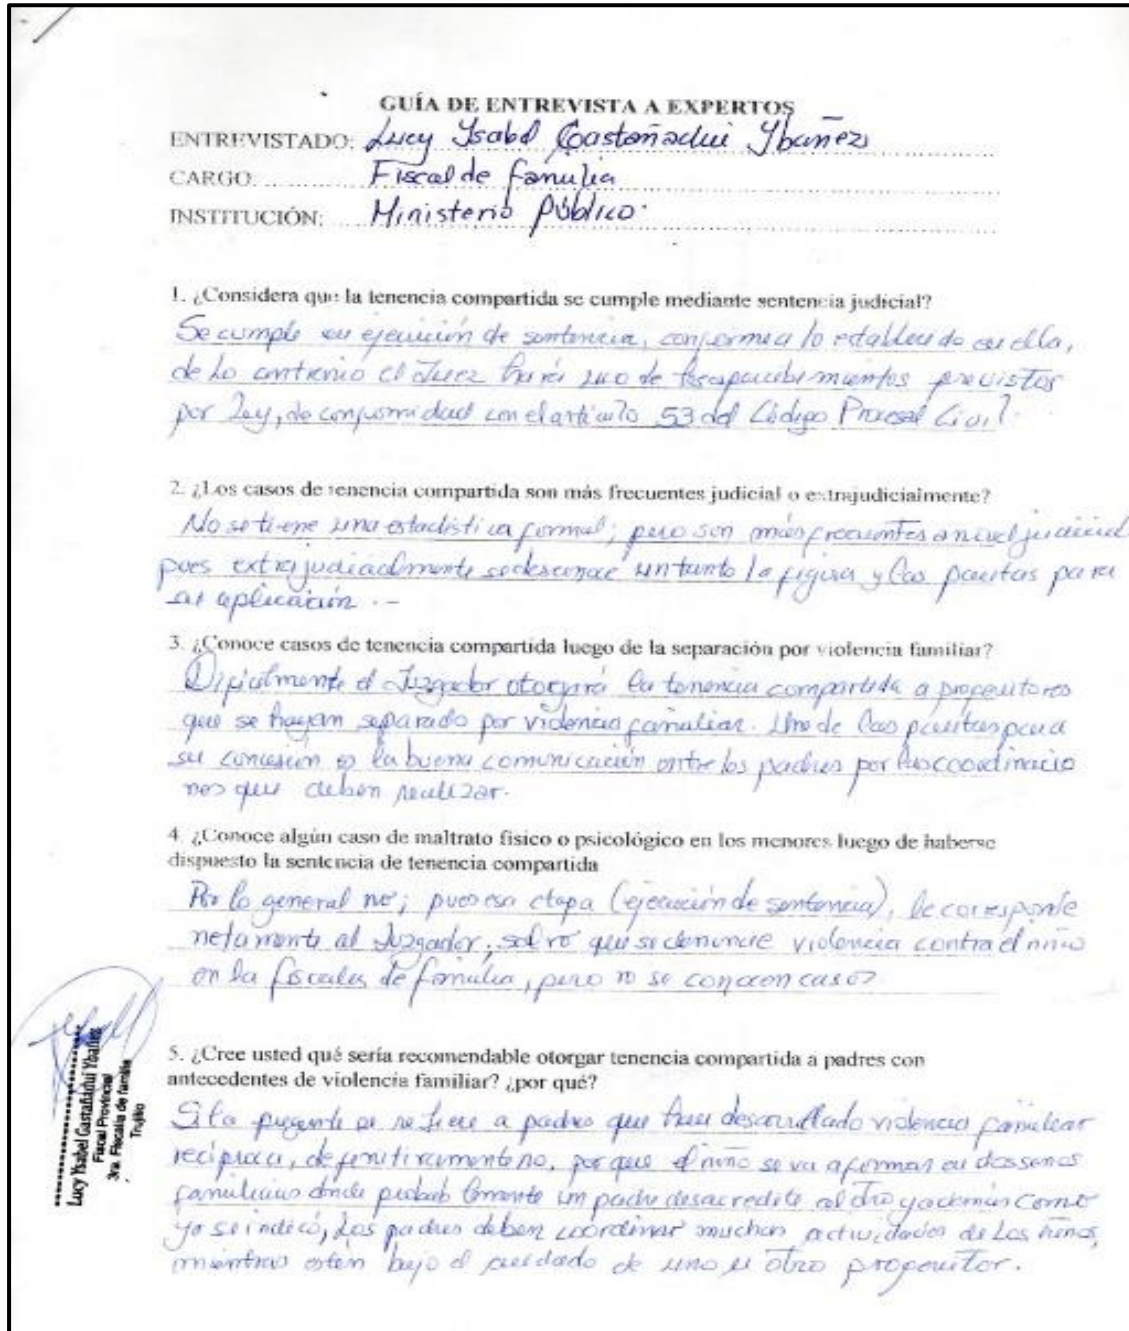 GUÍA DE ENTREVISTA A EXPERTOS
ENTREVISTADO: Lucy Ysabel Castañadui Ybañez
CARGO: Fiscal de familia
INSTITUCIÓN: Ministerio Público.
1. ¿Considera que la tenencia compartida se cumple mediante sentencia judicial?
Se cumple en ejecución de sentencia, conforme a lo establecido en ella,
de lo contrario el Juez hará uso de los apercibimientos previstos
por Ley, de conformidad con el artículo 53 del Código Procesal Civil.
2. ¿Los casos de tenencia compartida son más frecuentes judicial o extrajudicialmente?
No se tiene una estadística formal; pero son más frecuentes a nivel judicial
pues extrajudicialmente se desconoce un tanto la figura y las pautas para
su aplicación.-
3. ¿Conoce casos de tenencia compartida luego de la separación por violencia familiar?
Dificilmente el Juzgador otorgará la tenencia compartida a progenitores
que se hayan separado por violencia familiar. Una de las pautas para
su concesión es la buena comunicación entre los padres por las coordinacio
nes que deben realizar.
4. ¿Conoce algún caso de maltrato físico o psicológico en los menores luego de haberse
dispuesto la sentencia de tenencia compartida
Por lo general no; pues esa etapa (ejecución de sentencia), le corresponde
netamente al Juzgador, salvo que se denuncie violencia contra el niño
en la fiscalía de familia, pero no se conocen casos
5. ¿Cree usted qué sería recomendable otorgar tenencia compartida a padres con
antecedentes de violencia familiar? ¿por qué?
Si la pregunta se refiere a padres que han desarrollado violencia familiar
recíproca, definitivamente no, porque el niño se va a formar en dos senos
familiares donde probablemente un padre desacredite al otro y además como
ya se indicó, los padres deben coordinar muchas actividades de los niños,
mientras estén bajo el cuidado de uno u otro progenitor.
Lucy Ysabel Castañadui Ybañez
Fiscal Provincial
3ra. Fiscalía de familia
Trujillo